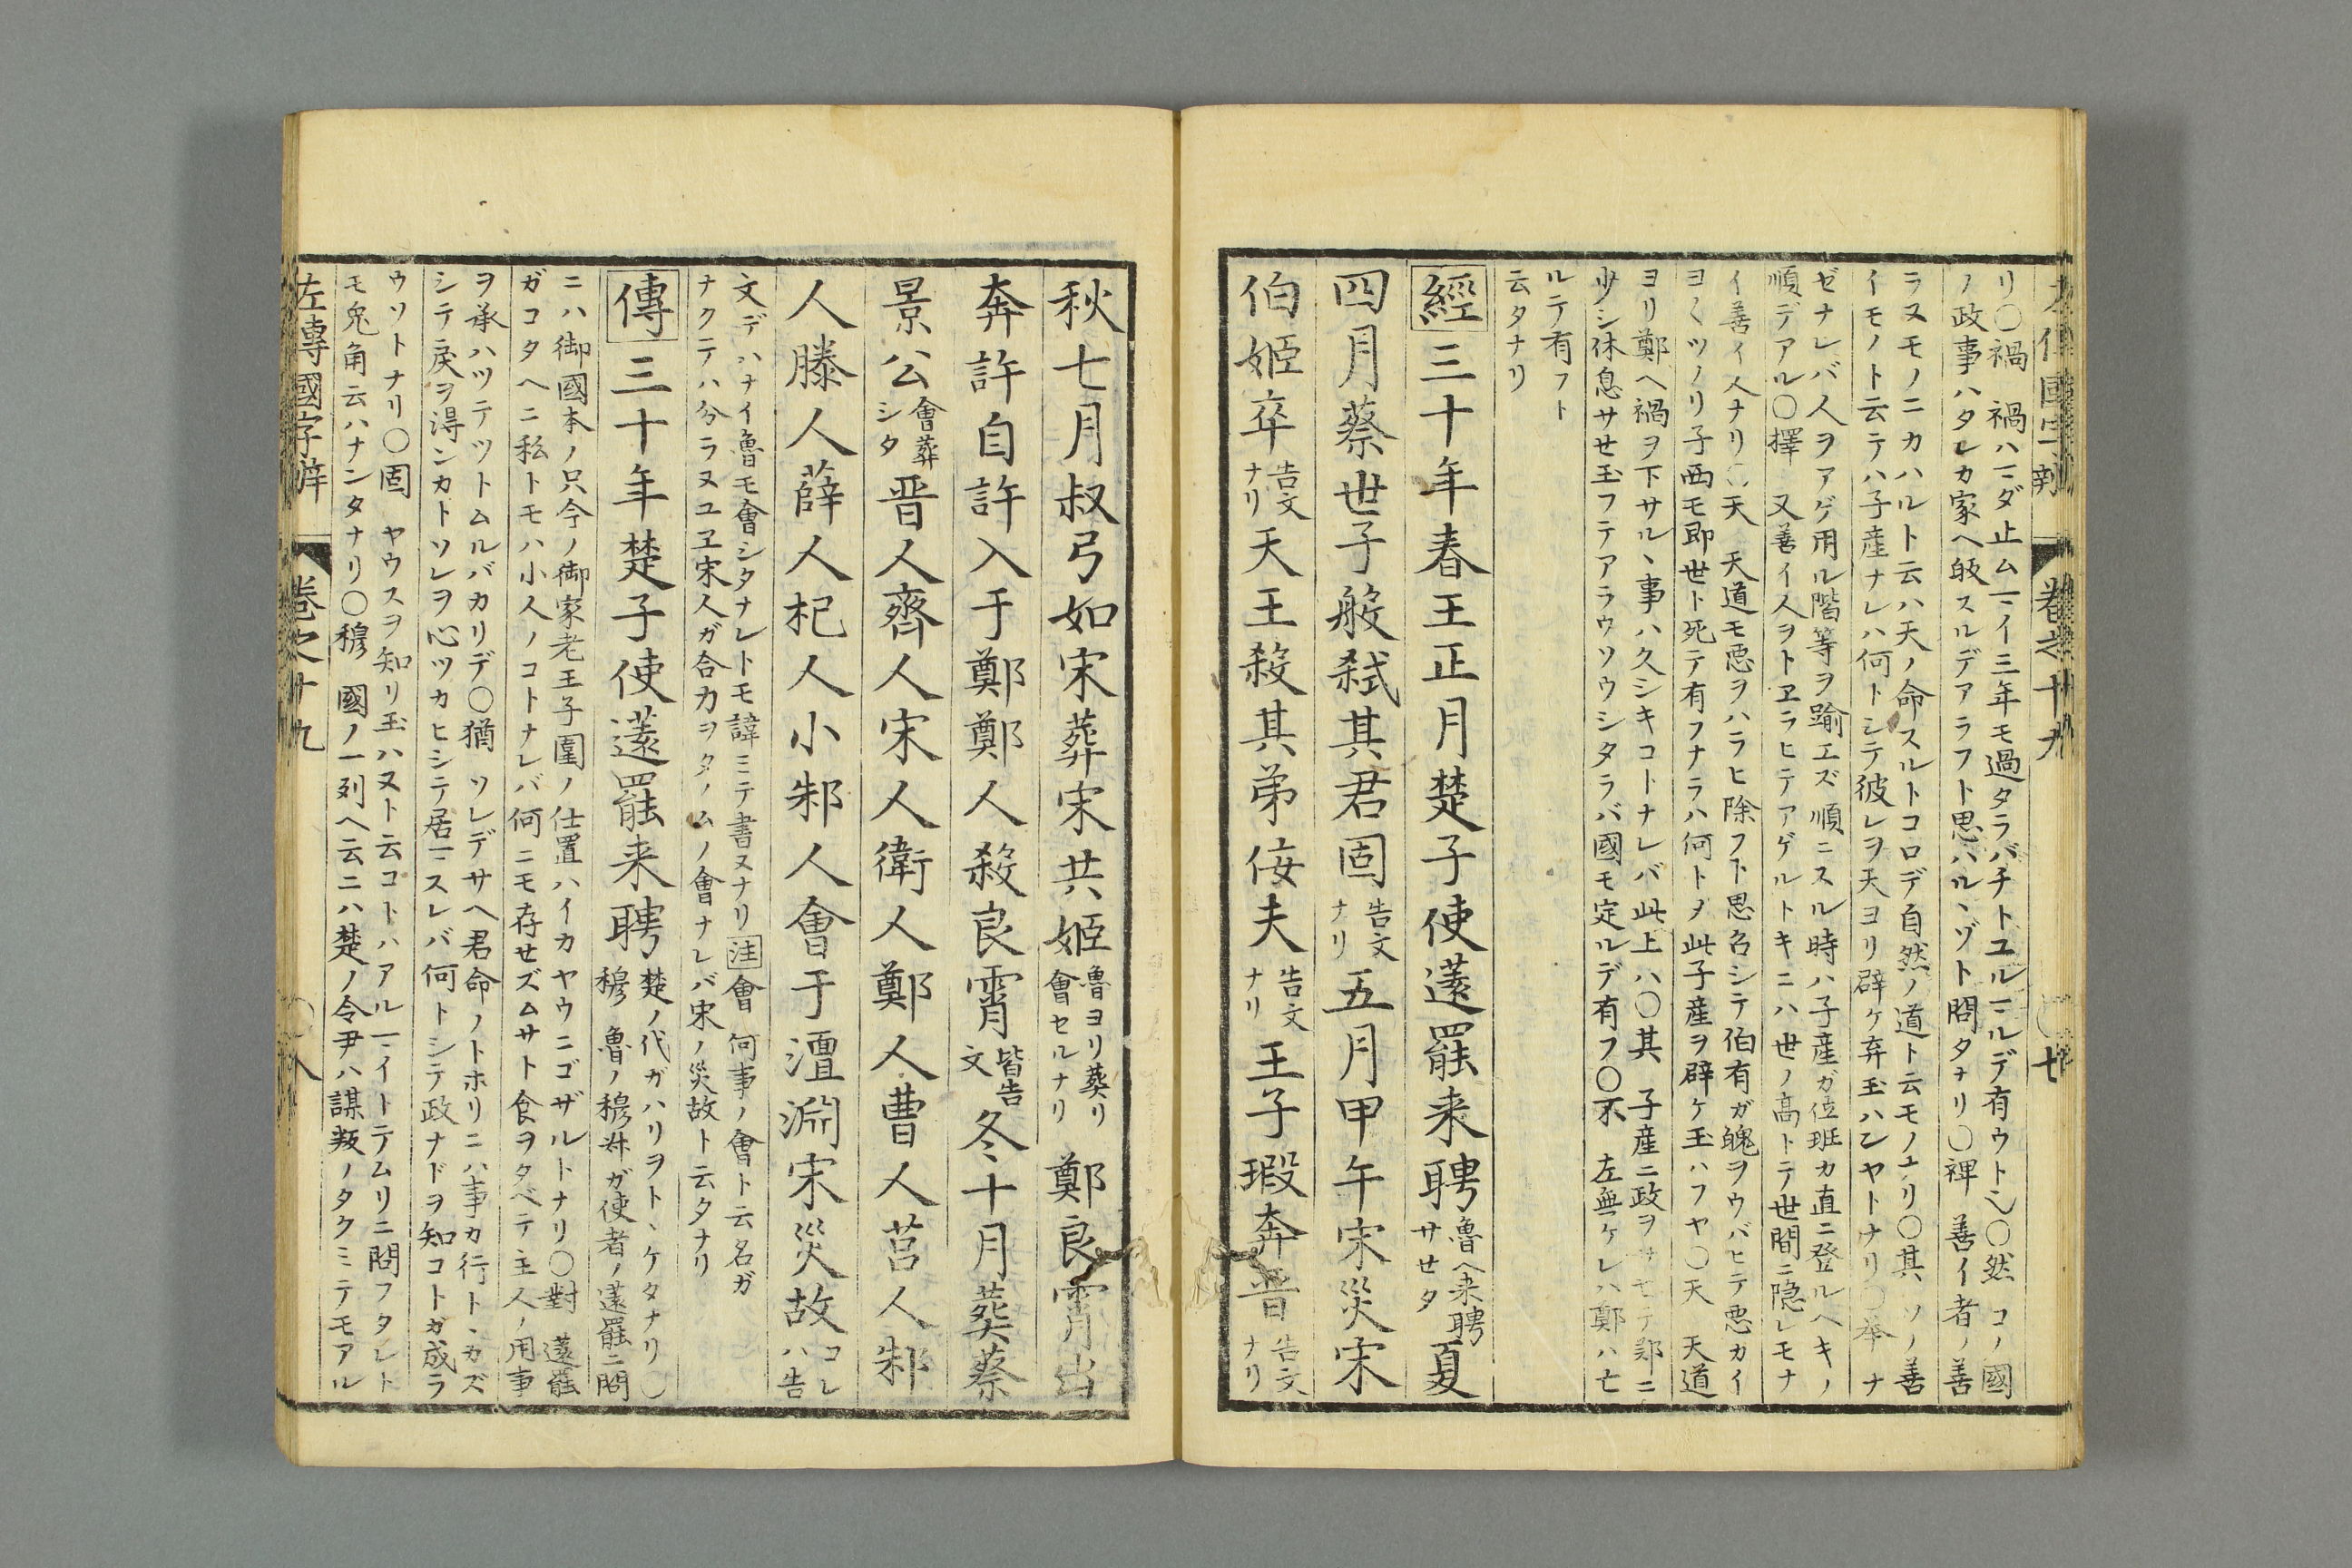 左傳國字辯 巻之十九
リ〇禍 禍ハマダ止ムマイ三年モ過タラバチトユルマルデ有ウト也〇然 コノ國
ノ政事ハタレカ家ヘ皈スルデアラフト思ハルヽゾト問タナリ〇禆 善イ者ノ善
ラヌモノニカハルト云ハ天ノ命スルトコロデ自然ノ道ト云モノナリ〇其 ソノ善
イモノト云テハ子産ナレハ何トシテ彼レヲ天ヨリ辟ケ弃玉ハンヤトナリ〇举 ナ
ゼナレバ人ヲアゲ用ル階等ヲ踰エズ順ニスル時ハ子産ガ位班カ直ニ登ルヘキノ
順デアル〇擇 又善イ人ヲトヱラヒテアゲルトキニハ世ノ高トテ世間ニ隠レモナ
イ善イ人ナリ〇天 天道モ悪ヲハラヒ除フト思召シテ伯有ガ魄ヲウバヒテ悪カイ
ヨ〱ツノリ子西モ即世ト死テ有フナラハ何トゾ此子産ヲ辟ケ玉ハフヤ〇天 天道
ヨリ鄭ヘ禍ヲ下サルヽ事ハ久シキコトナレバ此上ハ〇其 子産ニ政ヲサセテ鄭ニ
少シ休息サせ玉フテアラウソウシタラバ國モ定ルデ有フ〇不 左無ケレハ鄭ハ亡
ルテ有フト
云タナリ
經三十年春王正月楚子使薳罷来聘魯ヘ来聘サせタ夏
四月蔡世子般弑其君固告文ナリ五月甲午宋災宋
伯姬卒告文ナリ天王殺其弟佞夫告文ナリ王子瑕奔晋告文ナリ
秋七月叔弓如宋葬宋共姬魯ヨリ葬リ會セルナリ鄭良霄出
奔許自許入于鄭鄭人殺良霄皆告文冬十月葬蔡
景公會葬シタ晋人齊人宋人衛人鄭人曹人莒人邾
人滕人薛人杞人小邾人會于澶淵宋災故コレハ告
文デハナイ魯モ會シタナレトモ諱ミテ書ヌナリ注會 何事ノ會ト云名ガ
ナクテハ分ラヌユヱ宋人ガ合力ヲタノムノ會ナレバ宋ノ災故ト云タナリ
傳三十年楚子使薳罷来聘楚ノ代ガハリヲトヽケタナリ〇
穆 魯ノ穆叔ガ使者ノ薳罷ニ問
ニハ御國本ノ只今ノ御家老王子圍ノ仕置ハイカヤウニゴザルトナリ〇對 薳罷
ガコタヘニ私トモハ小人ノコトナレバ何ニモ存せズムサト食ヲタベテ主人ノ用事
ヲ承ハツテツトムルバカリデ〇猶 ソレデサヘ君命ノトホリニハ事カ行トヽカズ
シテ戾ヲ得ンカトソレヲ心ツカヒシテ居マスレバ何トシテ政ナドヲ知コトガ成ラ
ウソトナリ〇固 ヤウスヲ知リ玉ハヌト云コトハアルマイトテムリニ問フタレト
モ兔角云ハナンタナリ〇穆 國ノ一列ヘ云ニハ楚ノ令尹ハ謀叛ノタクミテモアル
左傳國字辯 巻之十九